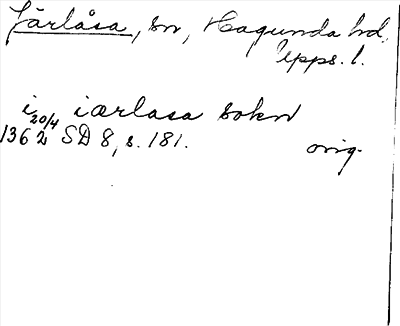 Järlåsa, sn, Hagunda hd,
Upps. l.
i iærlasa sokn
1362 20/4 SD 8, s. 181. orig.